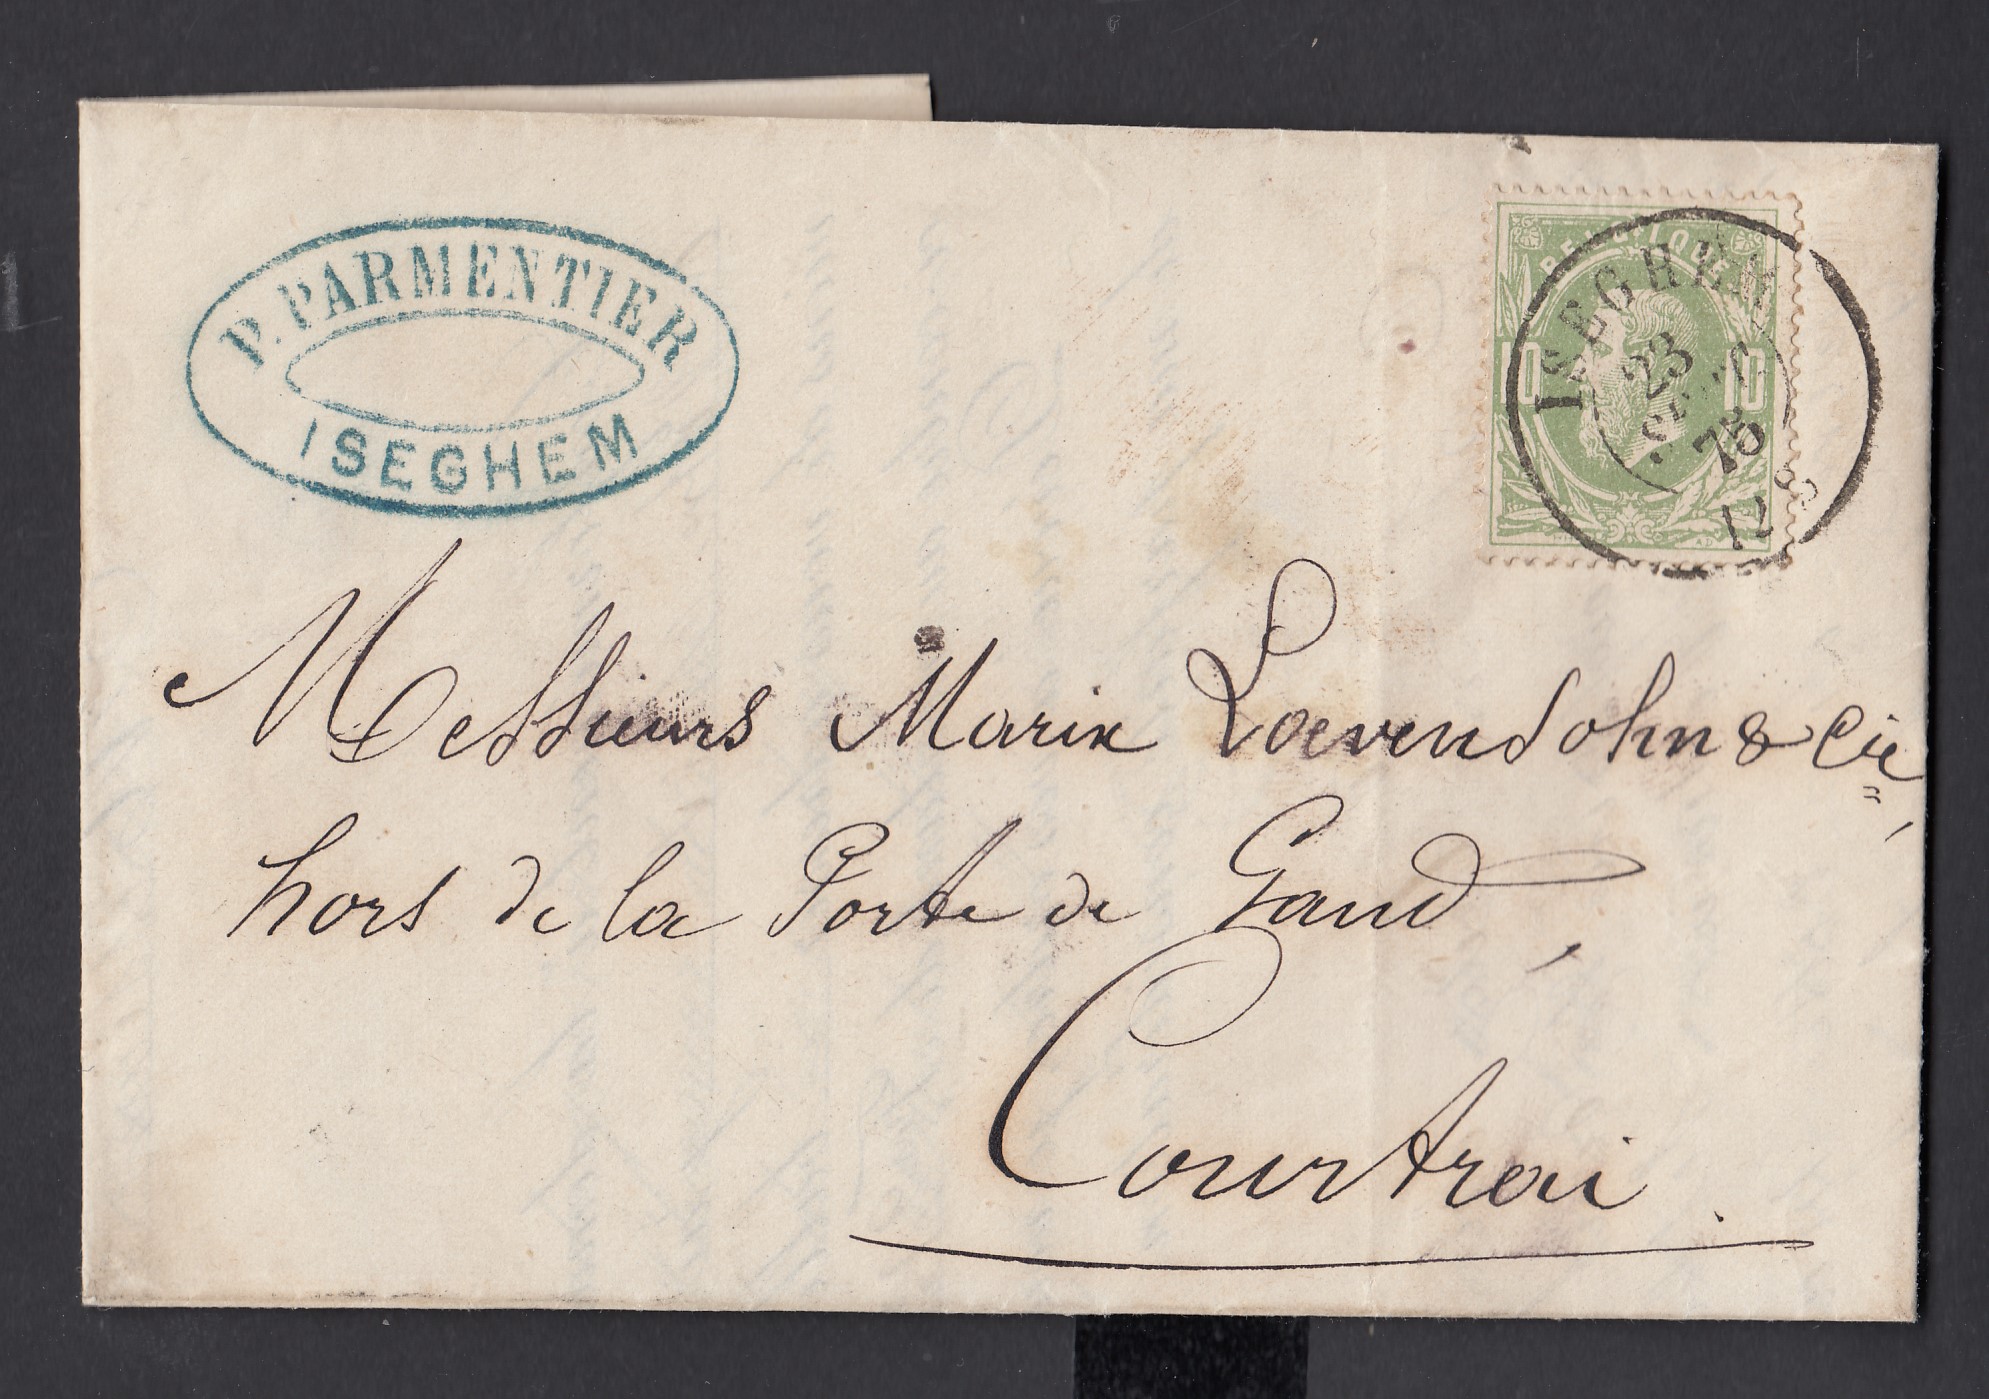 P. PARMENTIER
ISEGHEM
BELGIQUE
10 10
ISEGHEM
23
SEPT
75
12
Messieurs Marix Loevensohn & Cie,
hors de la Porte de Gand,
Courtrai.